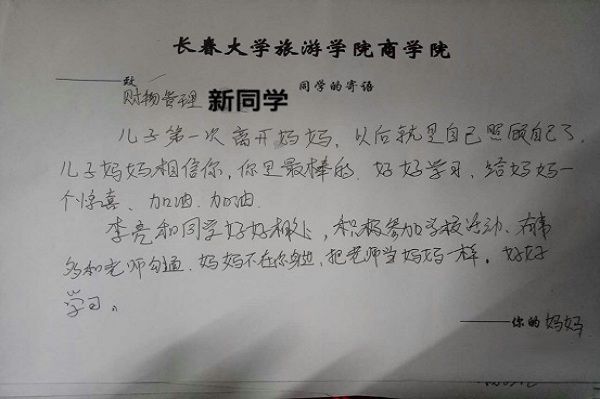 长春大学旅游学院商学院
财物管理 新同学 同学的寄语
儿子第一次离开妈妈，以后就是自己照顾自己了，
儿子妈妈相信你，你是最棒的，好好学习，给妈妈一
个惊喜、加油.加油.
李亮和同学好好相处，积极参加学校活动、有事
多和老师勾通.妈妈不在你身边、把老师当妈妈一样。好好
学习。
——你的妈妈